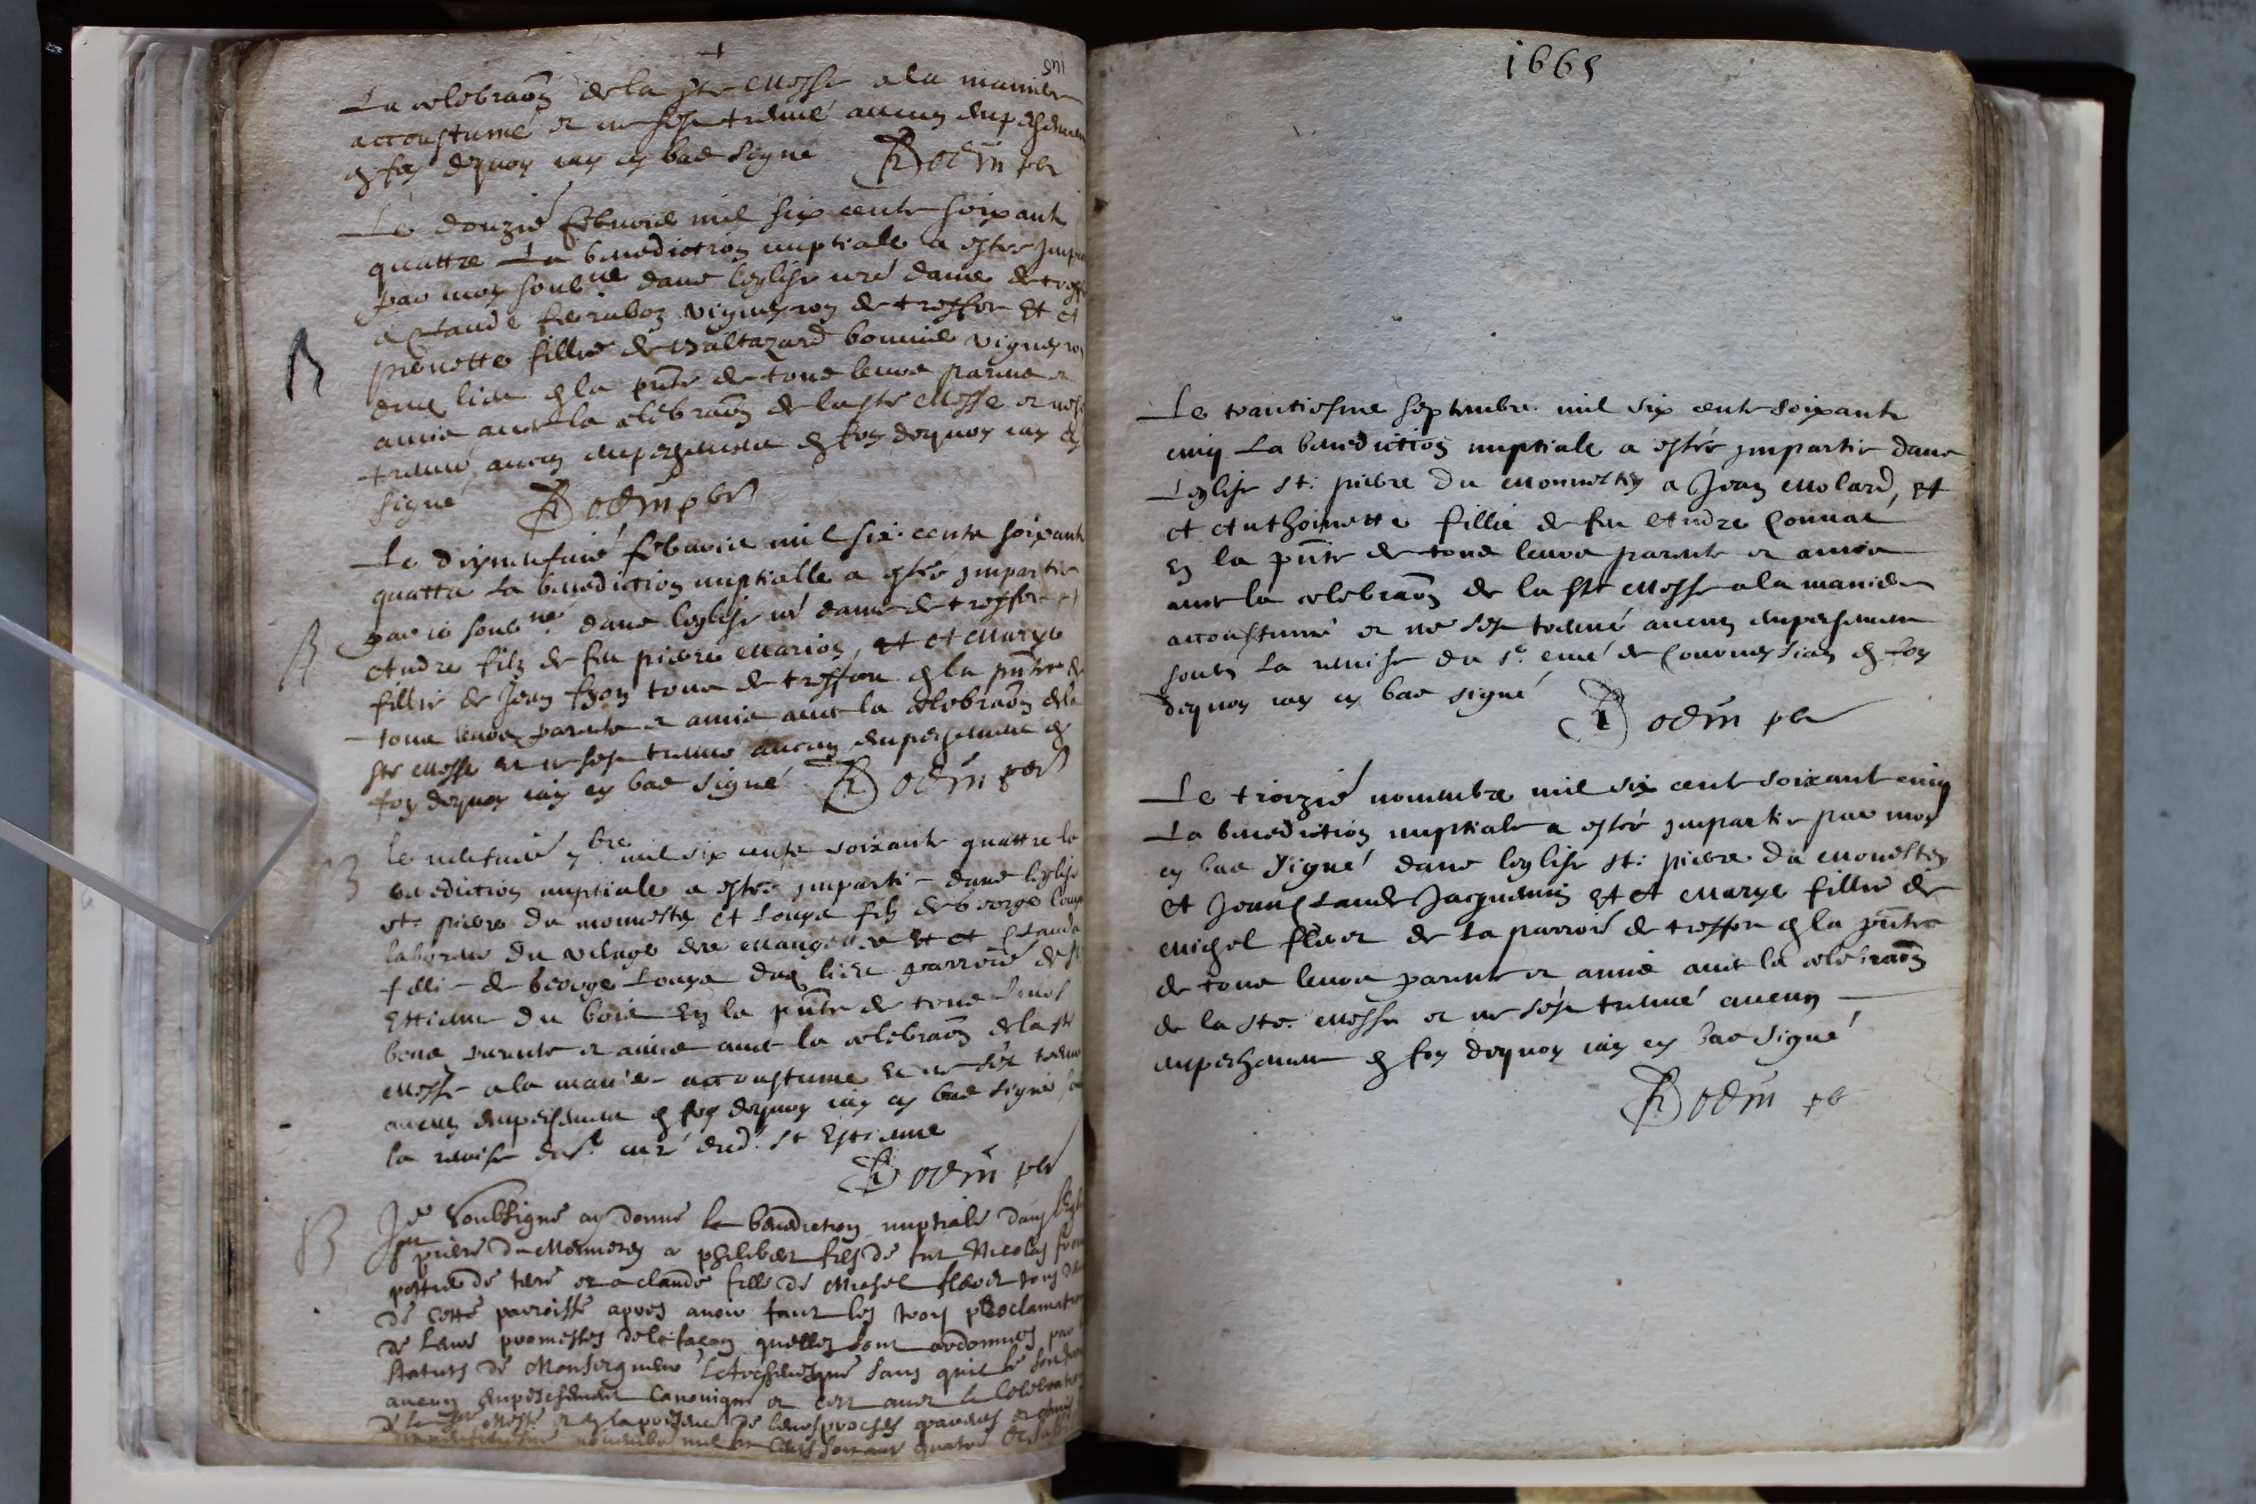 La celebraõn de la ste Messe a la maniere
accoustumé et ne sest treuvé aucun empeschement
en foy dequoy iay cy bas signé Bodin pbr
Le douzié febvrier mil six cents soixant
quattre La benediction nuptiale a estée
par moy soubné dans leglise nré dame de
a Claude vigneron de treffor Et a
pierrette fillie de Baltazard bonnie vigneron
dud lieu en la pñte de tous leurs parens et
amis avec la celebraõn de la ste Messe et ne sest
treuvé aucun empeschement en foy dequoy iay cy
signé Bodin pbr
Le dixneufvié febvrier mil six cents soixante
quattre La benediction nuptialle a estée impartie
par ie soubné dans leglise nré dame de treffor
Andre filz de feu pierre Marion, Et a Marye
fillie de Jean tous de treffort en la pñte de
tous leurs parents et amis avec la celebraõn de la
ste Messe et ne sest treuvé aucun empeschement en
foy dequoy iay cy bas signé Bodin pbr
le neufvié 7bre mil six cents soixante quattre la
benediction nuptiale a estée imparti dans leglise
st. pierre du monnestey A Loupe filz de George Loupe
laboreur du vilage des Et a Clauda
filli de George Loupe dud lieu parroisse de st
Estienne du bois En la pñte de tous leurs
bons parents et amis avec la celebraõn de la ste
Messe a la manie accoustume Et ne sest treuvé
aucun empeschement en foy dequoy iay cy bas signé
la remise du sr. curé dud. st Estienne
Bodin pbr
Je soubsigné ay donné la benediction nuptiale dans leglise
st pierre du Monnestey a philibert fils de feu Nicolas
et a claude fille de Michel tous deux
de cette parroisse apres avoir faict les trois proclamations
de leurs promesses de la façon quelles sont ordonnees par
statuts de Monseigneur Larchevesque sans quil se soit
aucun empeschement Canonique et cest avec la Celebration
de la ste Messe et en la presence de leurs proches parents et amis
novembre mil six Cents soixante quatre
1665
Le trantiesme septembre mil six cents soixante
cinq La benediction nuptiale a estée impartie dans
Leglise st. pierre du Monnestey a Jean Molard, et
et Anthoinette fillie de feu Andre Connat
En la pñte de tous leurs parents et amis
avec la celebraõn de la ste Messe a la maniere
accoustumé et ne sest treuvé aucun empeschement
la remise du sr. curé de en foy
dequoy iay cy bas signé
Bodin pbr
Le troizié novembre mil six cent soixant cinq
La benediction nuptiale a estée impartie par moy
cy bas signé dans leglise st. pierre du Monestey
A Jean Claude Jacquemin Et A Marye fillie de
Michel de la parroisse de treffor en la pñte
de tous leurs parents et amis avec la celebraõn
de la ste. Messe et ne sest treuvé aucun
empeschement en foy dequoy iay cy bas signé
Bodin pb